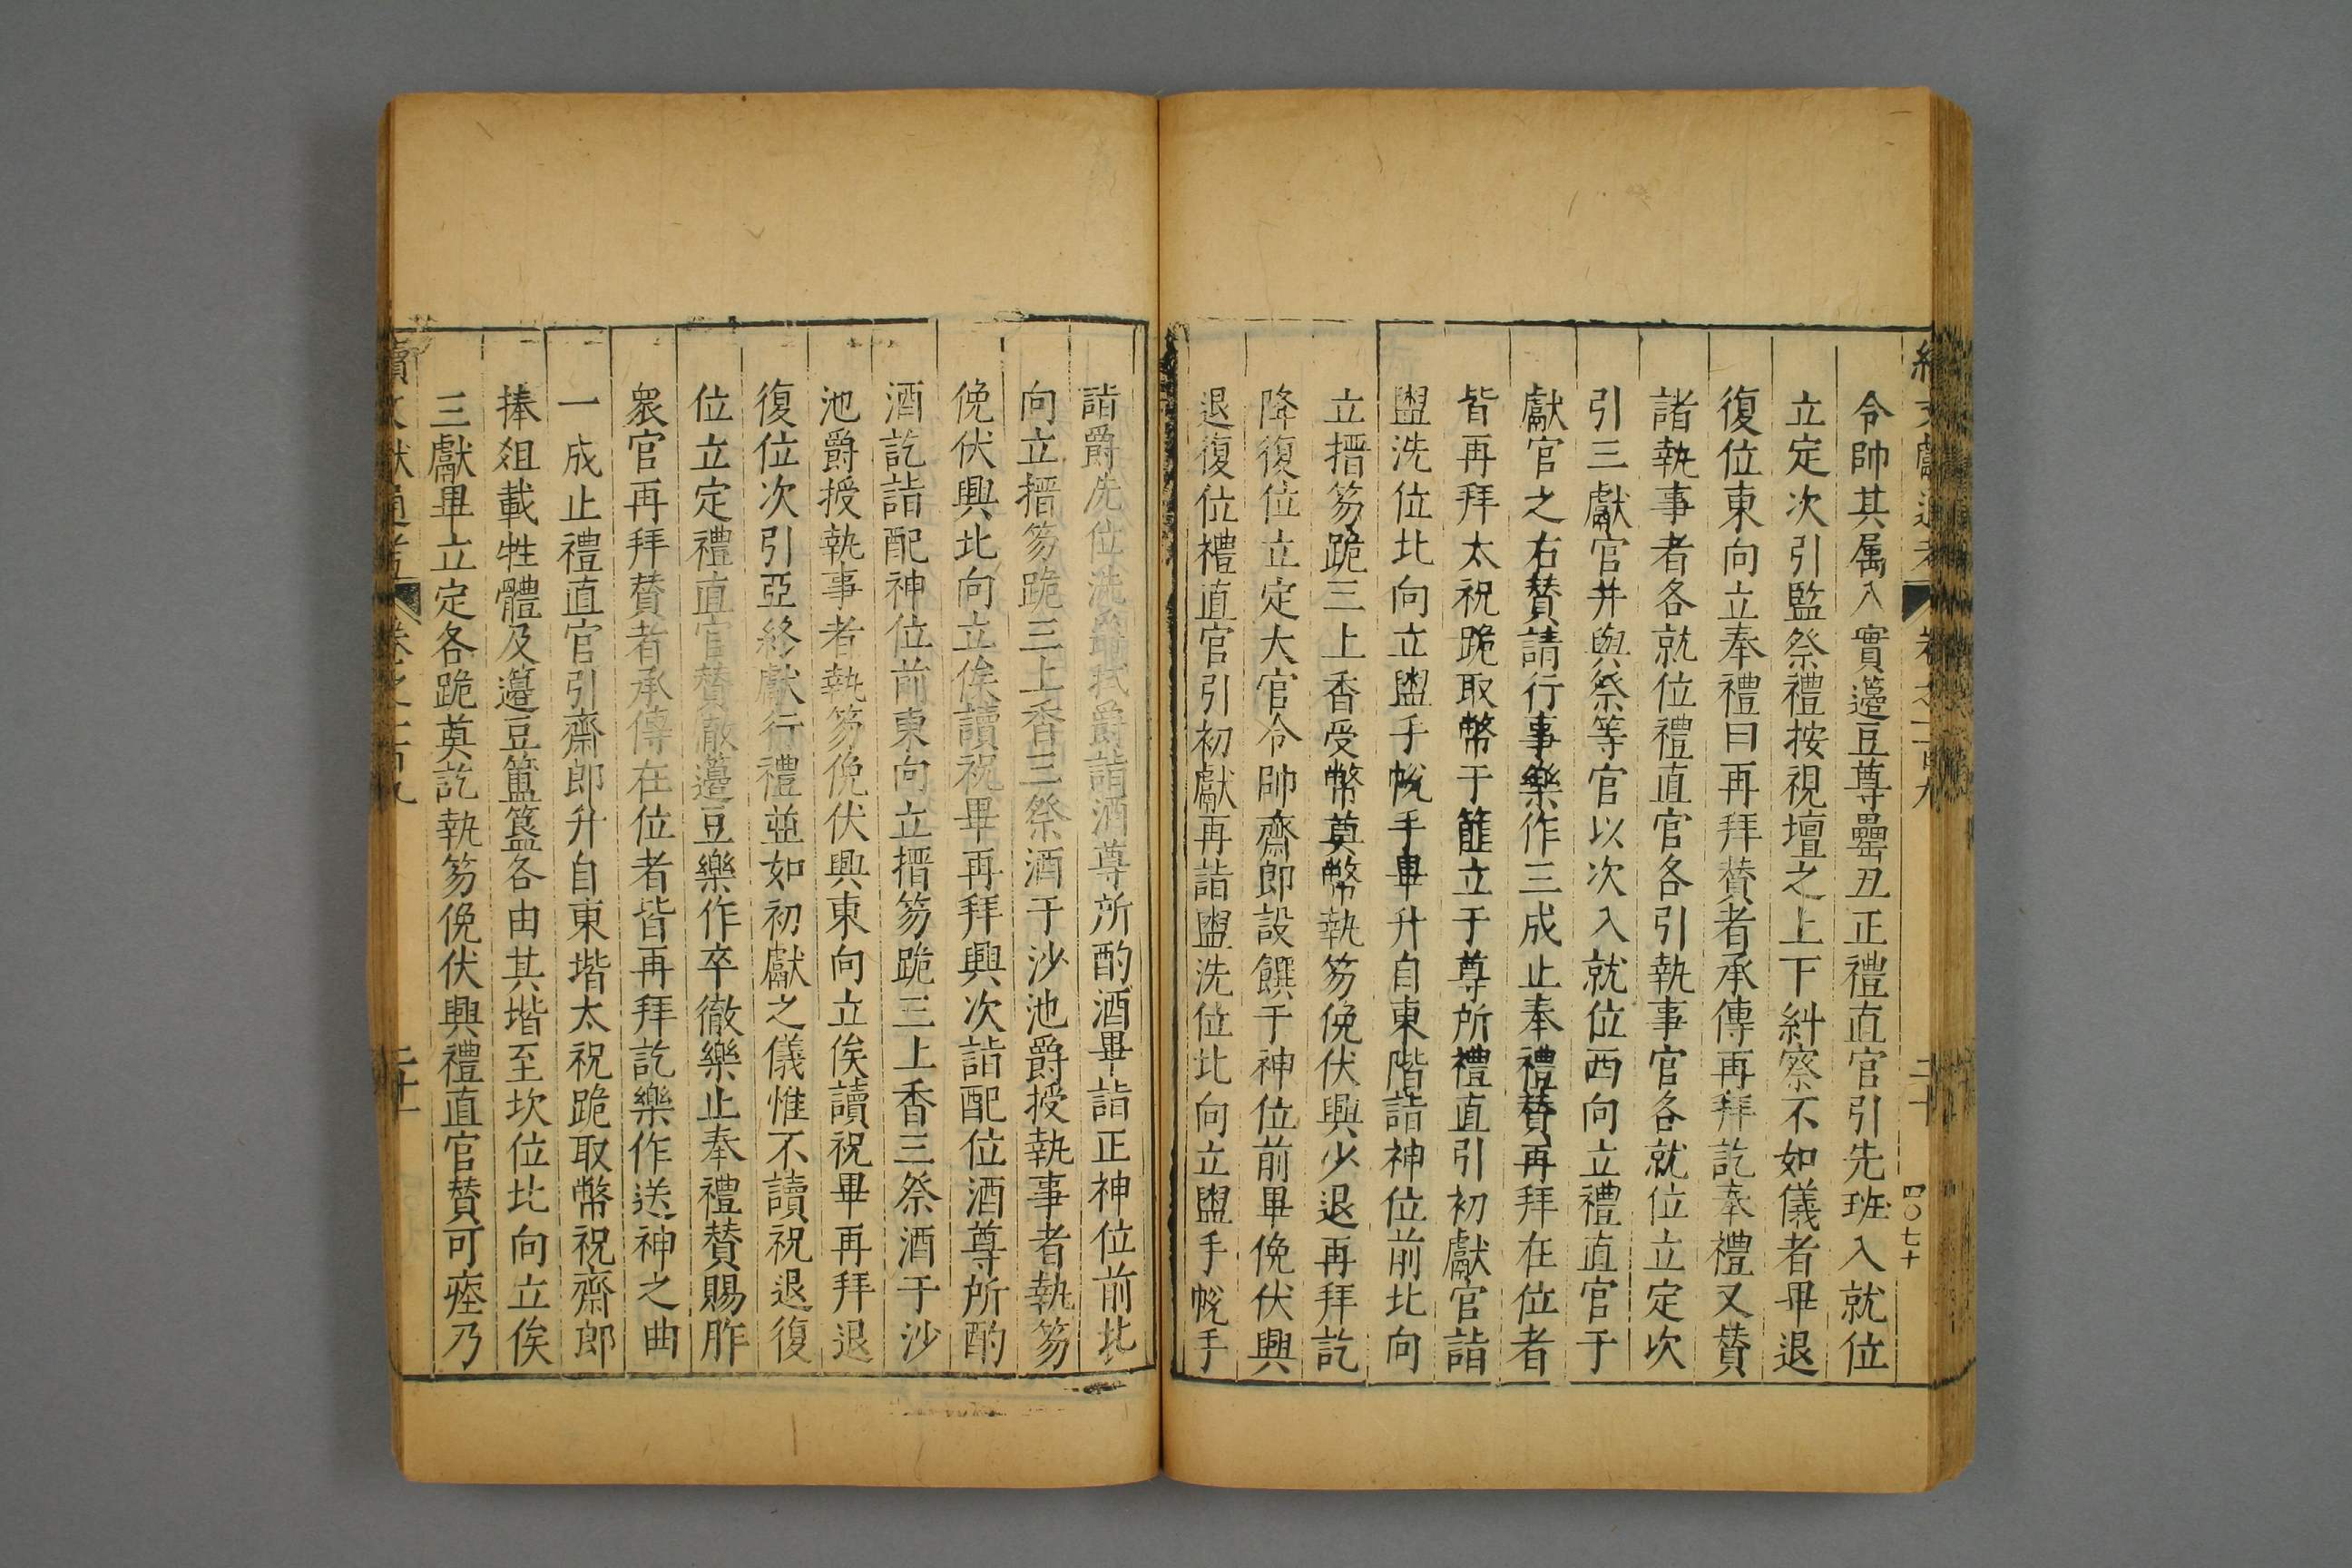 令帥其属入實籩豆尊罍丑正禮直官引先班入就位
立定次引監祭禮按視壇之上下糾察不如儀者畢退
復位東向立奉禮曰再拜賛者承傳再拜訖奉禮又賛
諸執事者各就位禮直官各引執事官各就位立定次
引三獻官并與祭等官以次入就位西向立禮直官于
獻官之右賛請行事樂作三成止奉禮賛再拜在位者
皆再拜太祝跪取幣于篚立于尊所禮直引初獻官詣
盥洗位北向立盥手帨手畢升自東階詣神位前北向
立搢笏跪三上香受幣奠幣執笏俛伏興少退再拜訖
降復位立定大官令帥齋郎設饌于神位前畢俛伏興
退復位禮直官引初獻再詣盥洗位北向立盥手帨手
詣爵洗位洗爵拭爵詣酒尊所酌酒畢詣正神位前北
向立搢笏跪三上香三祭酒于沙池爵授執事者執笏
俛伏興北向立俟讀祝畢再拜興次詣配位酒尊所酌
酒訖詣配神位前東向立搢笏跪三上香三祭酒于沙
池爵授執事者執笏俛伏興東向立俟讀祝畢再拜退
復位次引亞終獻行禮並如初獻之儀惟不讀祝退復
位立定禮直官賛徹籩豆樂作卒徹樂止奉禮賛賜胙
衆官再拜賛者承傳在位者皆再拜訖樂作送神之曲
一成止禮直官引齋郎升自東堦太祝跪取幣祝齋郎
捧俎載牲體及籩豆簠簋各由其堦至坎位北向立俟
三獻畢立定各跪奠訖執笏俛伏興禮直官賛可瘞乃